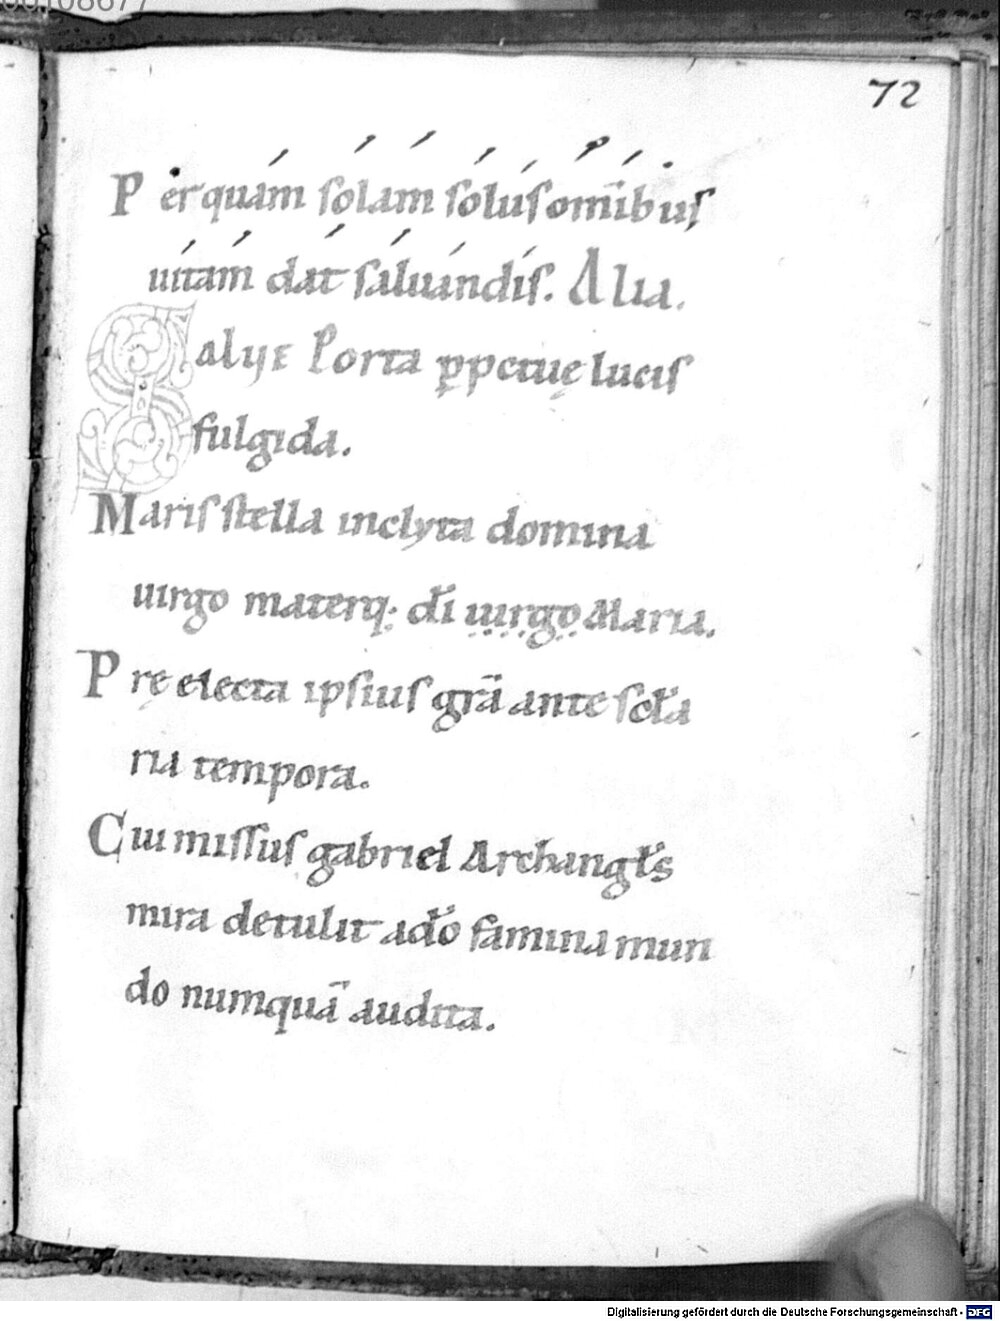 00108677
72
Per quam solam solus om̄ibus
uitam dat saluandis. Alia.
Salue Porta ꝑpetuę lucis
fulgida.
Maris stella inclyta domina
uirgo materq; di̅ uirgo Maria.
Pręelecta ipsius gr̄a ante scl̅a
ria tempora.
Cui missus gabriel Archangl̅s
mira detulit ad̅o famina mun
do numquā audita.
Digitalisierung gefördert durch die Deutsche Forschungsgemeinschaft - DFG